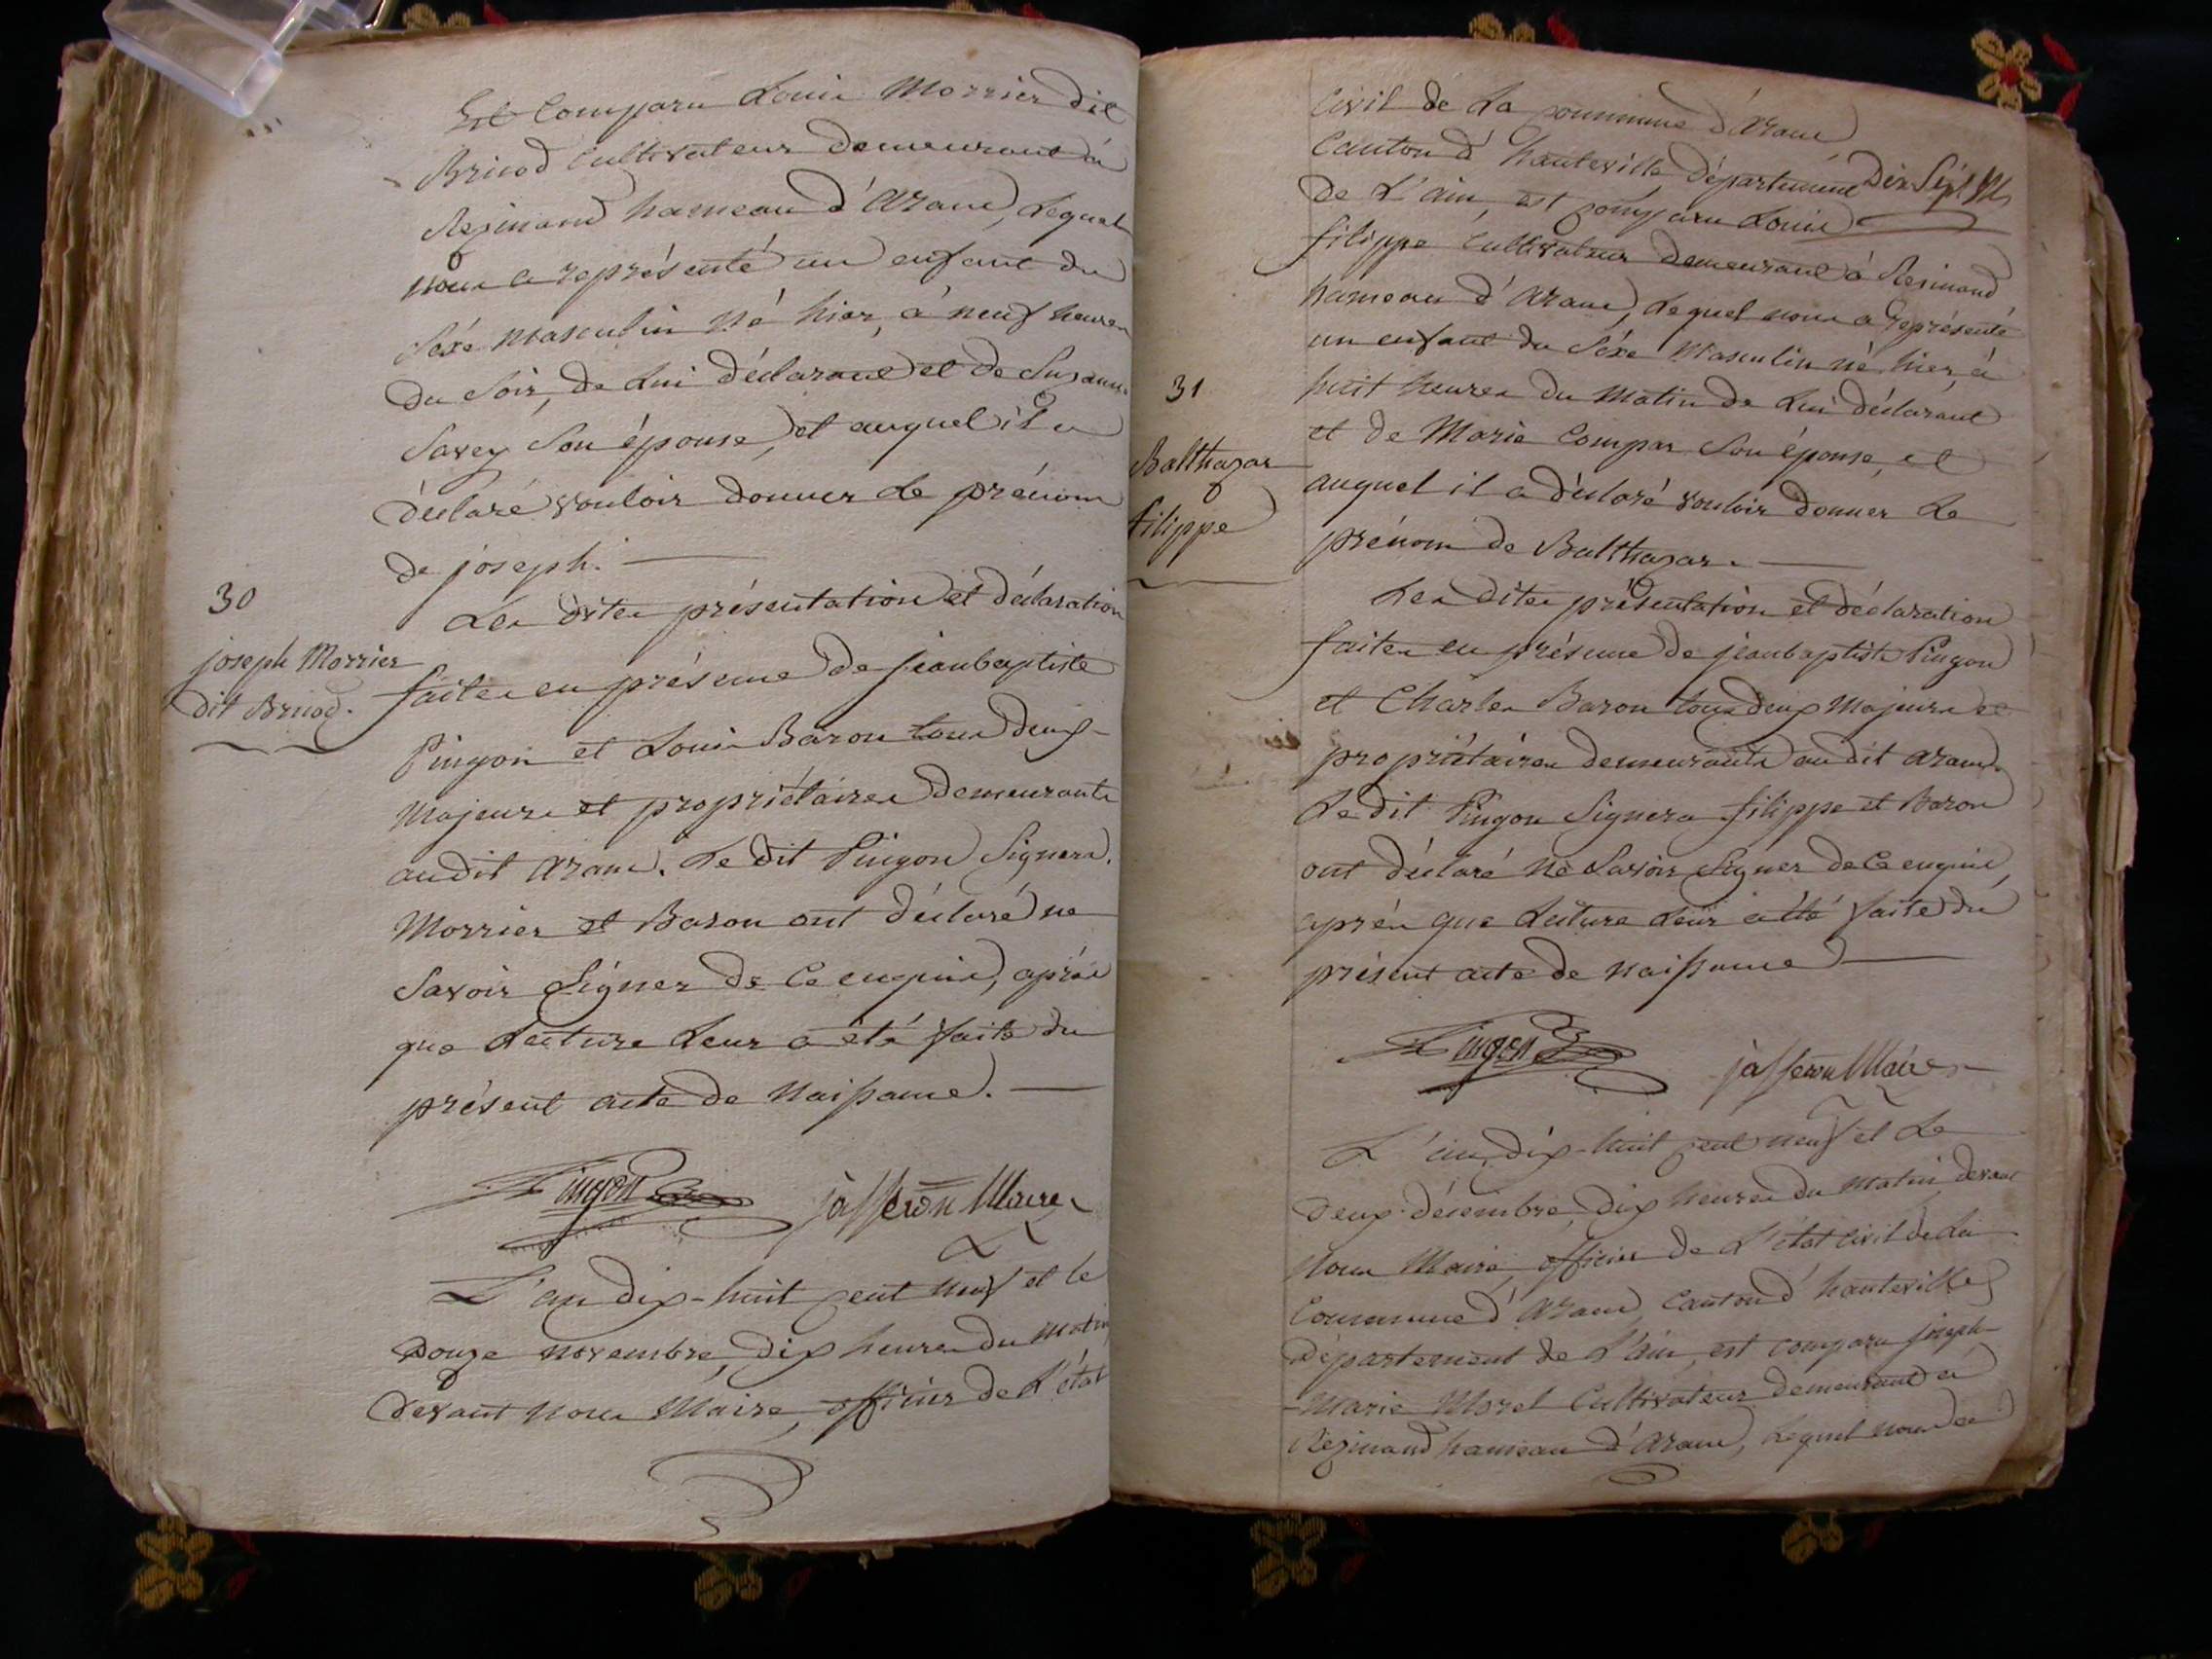 Est Comparu Louis Morrier dit
Briod Cultivateur demeurant à
Rezinand hameau d'Aranc, Lequel
nous a représenté un enfant du
Séxe Masculin Né hier, à neuf heures
du Soir, de Lui déclarant et de Suzanne
Savey Son épouse, et auquel il a
déclaré vouloir donner Le prénom
de joseph. —
30
joseph Morrier
dit Briod.
Les dites présentation et déclaration
faites en présence de jeanbaptiste
Pingon et Louis Baron tous deux
Majeurs et propriétaires demeurants
audit Aranc. Le dit Pingon Signera.
Morrier et Baron ont déclaré ne
Savoir Signer de Ce enquis, après
que Lecture Leur a été faite du
présent acte de Naissance. —
Pingon jasseron Maire
L'an dix-huit cent neuf et le
douze novembre, dix heures du Matin
devant Nous Maire, officier de L'état
Civil de La commune d'Aranc
Canton d'hauteville, département
Dix Sept
de L'ain, est comparu Louis
filippe Cultivateur demeurant à Rezinand
hameau d'Aranc, Lequel nous a représenté
un enfant du Séxe Masculin né hier, à
huit heures du Matin de Lui déclarant
et de Marie Compar Son épouse, et
auquel il a déclaré vouloir donner Le
prénom de Balthazar. —
31
Balthazar
filippe
Les dites présentation et déclaration
faites en présence de jeanbaptiste Pingon
et Charles Baron tous deux Majeurs et
propriétaires demeurants audit Aranc.
Le dit Pingon Signera filippe et Baron
ont déclaré ne Savoir Signer de Ce enquis,
après que Lecture Leur a été faite du
présent acte de Naissance —
Pingon jasseron Maire
L'an dix-huit cent neuf et Le
deux décembre, dix heures du Matin, devant
Nous Maire, officier de L'état Civil de La
Commune d'Aranc, Canton d'hauteville,
département de L'ain, est comparu joseph
Marie Morel Cultivateur demeurant à
Rezinand hameau d'Aranc, Lequel nous a